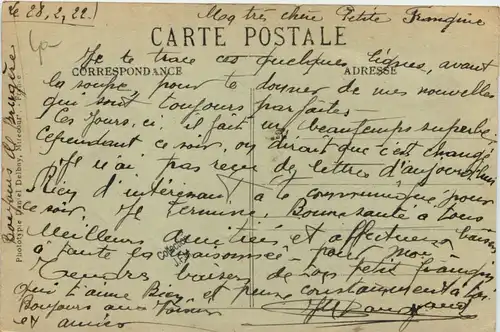 le 28, 2, 22.
Ma très chère Petite Frangine
CARTE POSTALE
CORRESPONDANCE
ADRESSE
Je te trace ces quelques lignes, avant
la soupe, pour te donner de mes nouvelles
qui sont toujours parfaites.
Ces jours ci il fait un beau temps superbe
Cependant ce soir, on dirait que c'est changé
Je n'ai pas reçu de lettre d'aujourd'hui
Rien d'intéressant à te communiquer pour
ce soir. Je termine. Bonne santé à tous
Meilleurs amitiés et affectueux baisers
à toute la maisonnée pour moi
Tendres baisers de ton petit frangin
qui t'aime Bien et pense constamment à toi.
Bonjours aux Voisins
et amies
Phototypie Daniel Delboy, Mirecourt